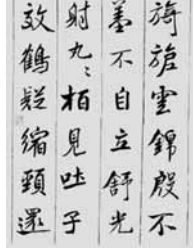 旖旎雲錦殷不
羞不自立舒光
射丸〻柏見吐子
效鶴疑縮頸還